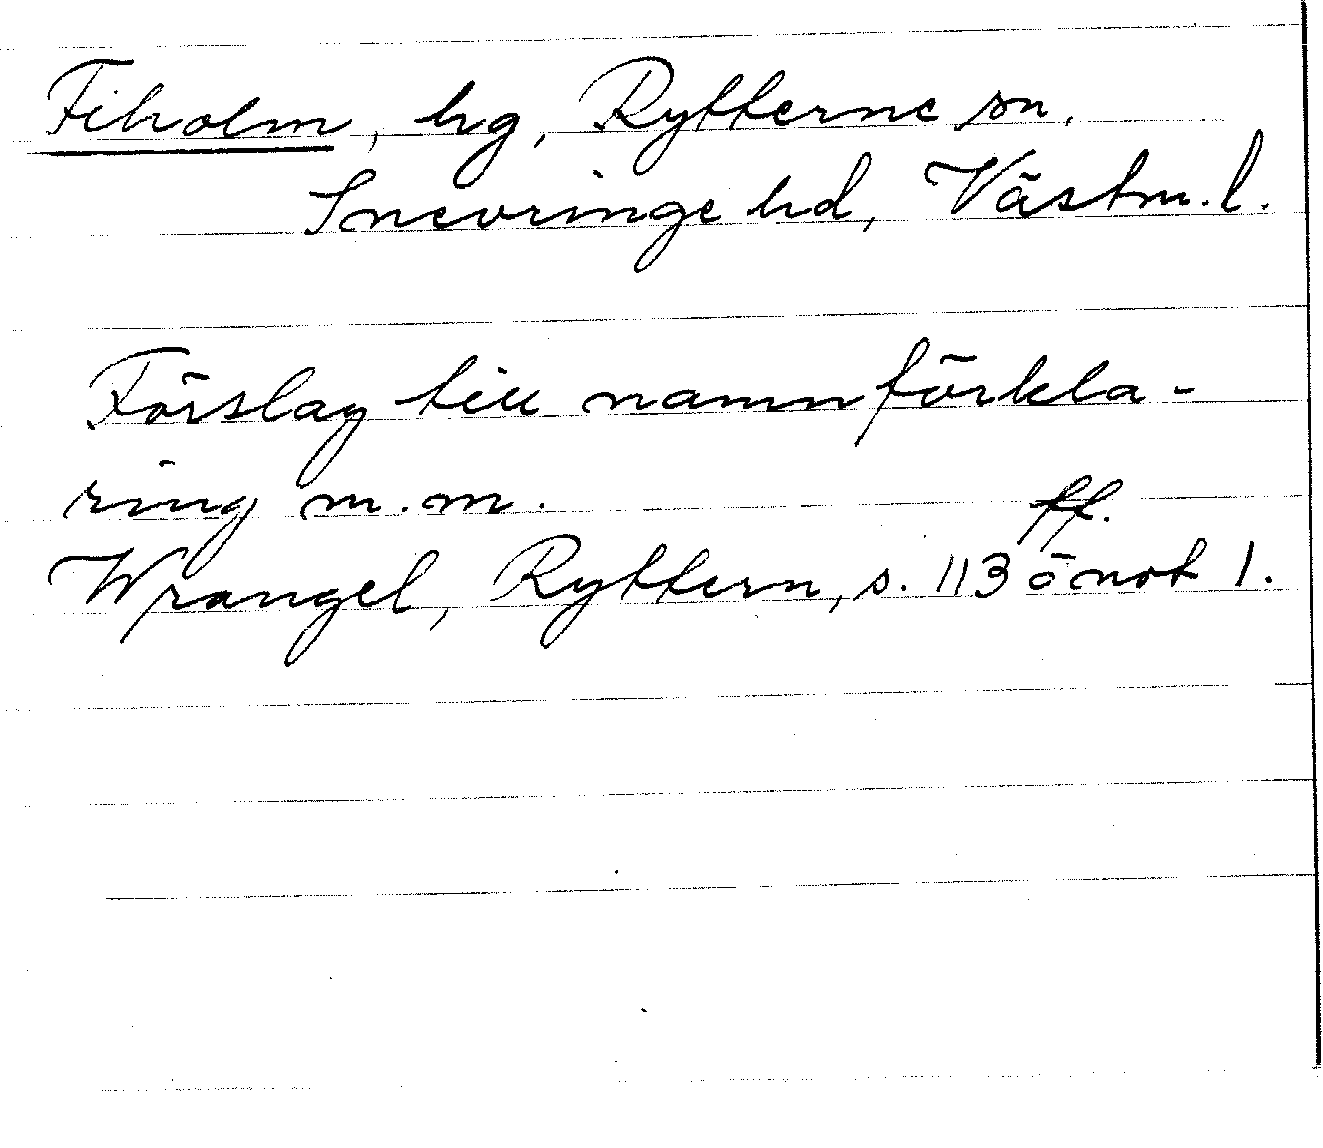 Fiholm, hg, Rytterne sn,
Snevringe hd, Västm. l.
Förslag till namnförkla-
ring m.m.
ff.
Wrangel, Ryttern, s. 113 o not 1.